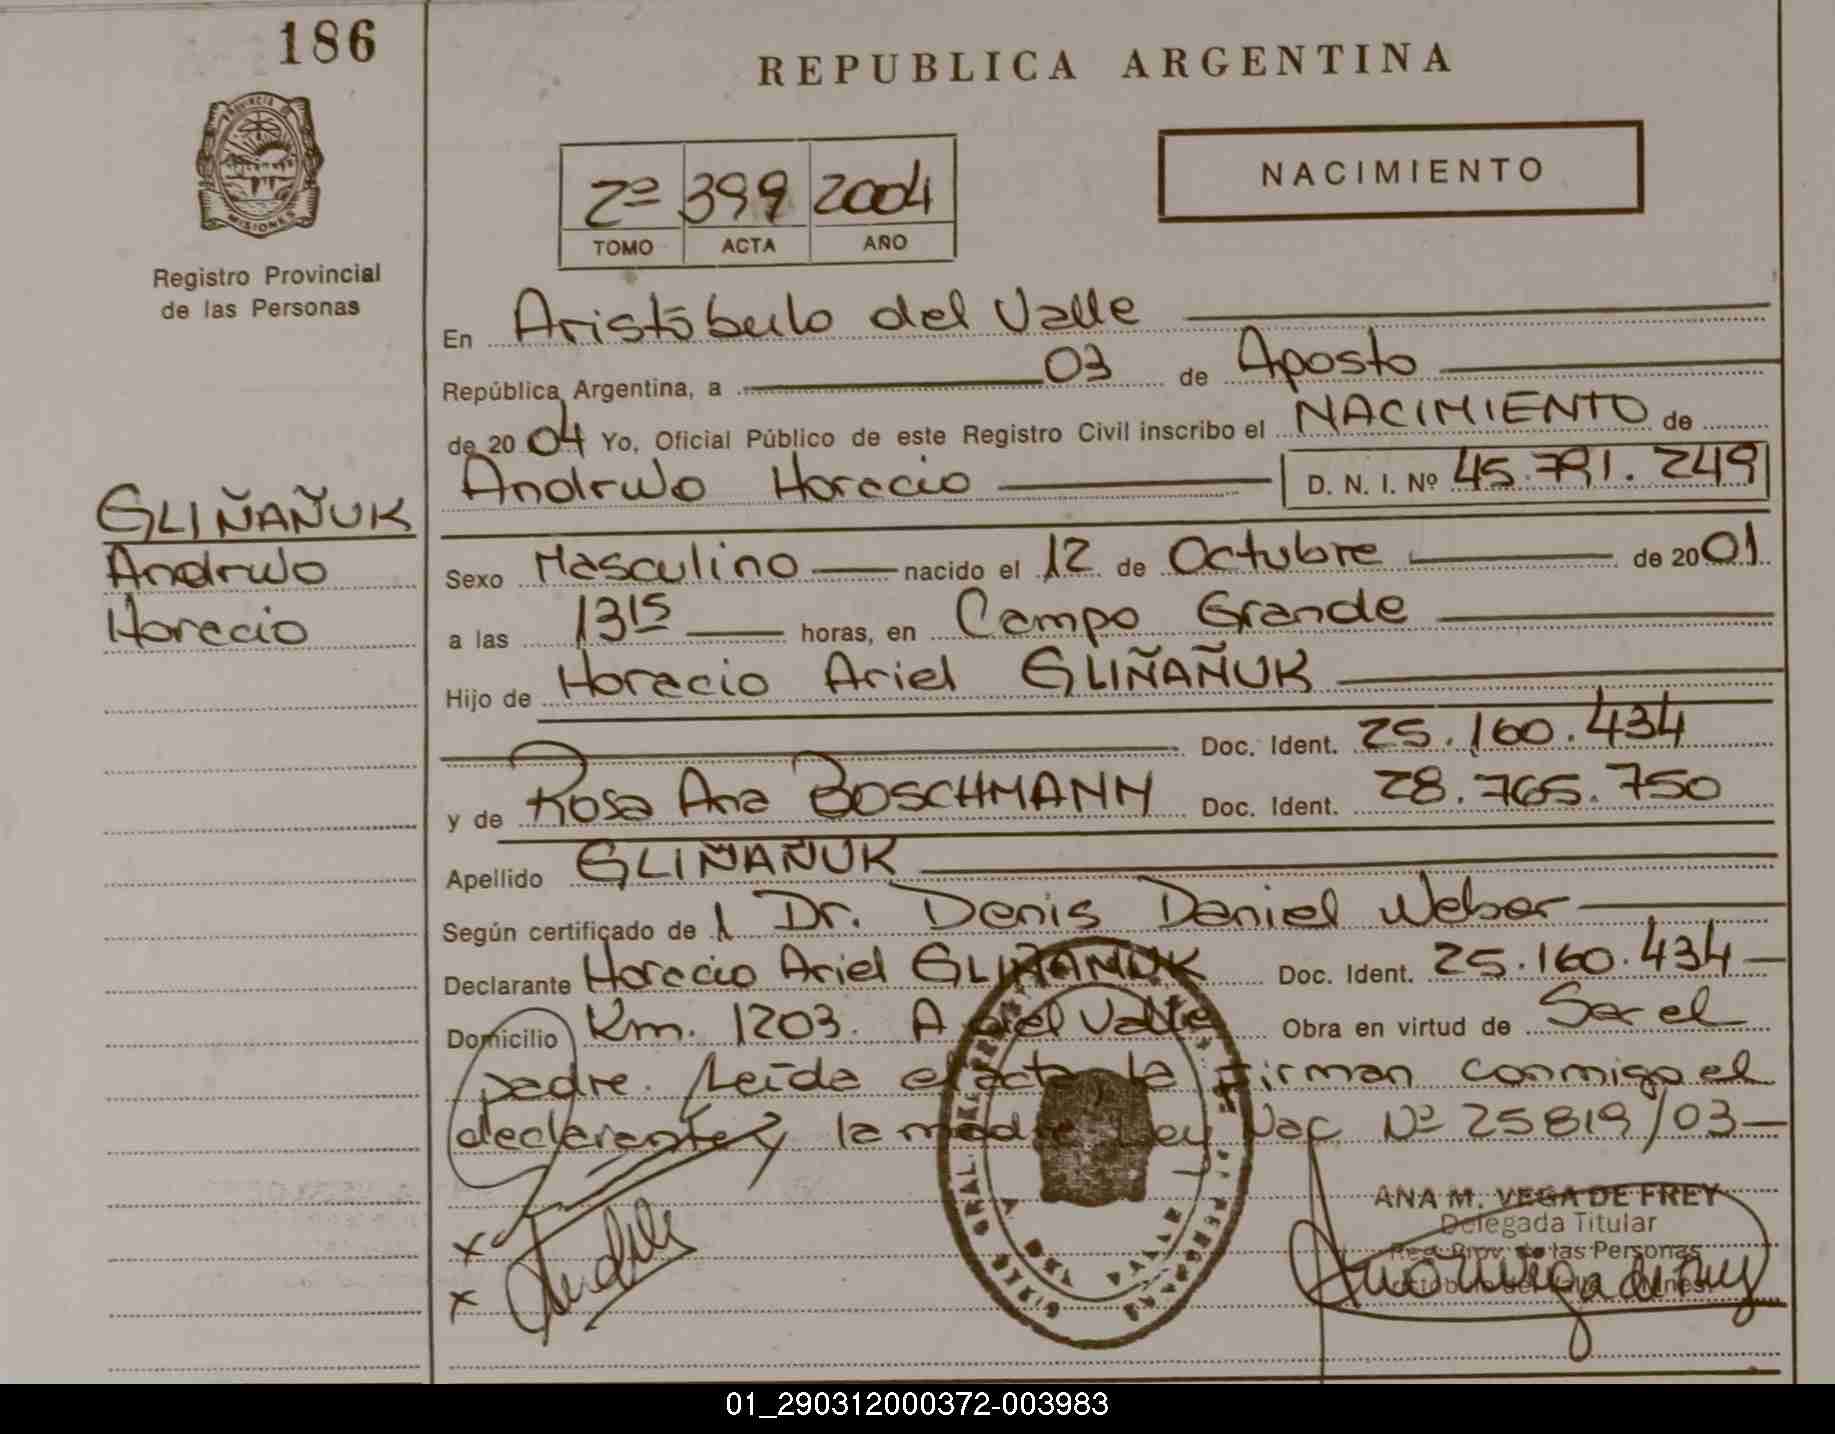 186
REPUBLICA ARGENTINA
PROVINCIA DE MISIONES
2º 399 2004
TOMO ACTA AÑO
NACIMIENTO
Registro Provincial
de las Personas
En Aristóbulo del Valle
República Argentina, a 03 de Agosto
de 2004 Yo, Oficial Público de este Registro Civil inscribo el NACIMIENTO de
Andrwo Horacio D. N. I. Nº 45.791.249
GLIÑAÑUK
Andrwo
Horacio
Sexo Masculino nacido el 12 de Octubre de 2001
a las 13 15 horas, en Campo Grande
Hijo de Horacio Ariel GLIÑAÑUK
Doc. Ident. 25.160.434
y de Rosa Ana BOSCHMANN Doc. Ident. 28.765.750
Apellido GLIÑAÑUK
Según certificado de l Dr. Denis Daniel Weber
Declarante Horacio Ariel GLIÑAÑUK Doc. Ident. 25.160.434
Domicilio Km. 1203. A del Valle Obra en virtud de Ser el
padre. Leída el acta, la firman conmigo el
declarante y la madre Ley Nac Nº 25819/03
ANA M. VEGA DE FREY
Delegada Titular
Reg. Prov. de las Personas
x
x
01_290312000372-003983